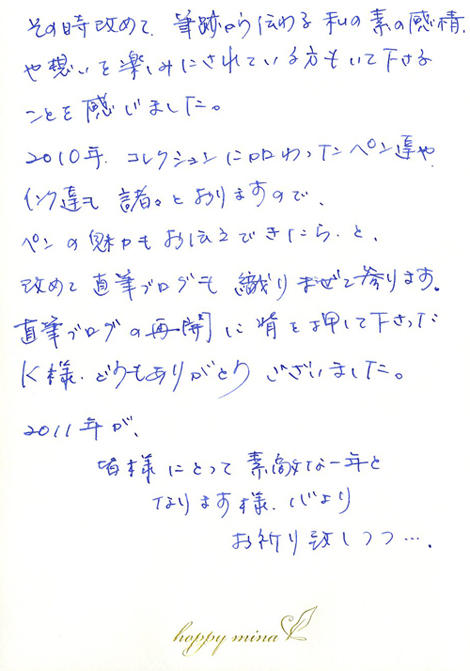 その時改めて、筆跡から伝わる私の素の感情、
や想いを楽しみにされている方もいて下さる
ことを感じました。
2010年、コレクションに加わったペン達や
インク達も諸々とありますので、
ペンの魅力もお伝えできたら、と、
改めて直筆ブログも織りまぜて参ります。
直筆ブログの再開に背を押して下さった
K様、どうもありがとうございました。
2011年が、
皆様にとって素敵な一年と
なります様、心より
お祈り致しつつ…。
happy mina